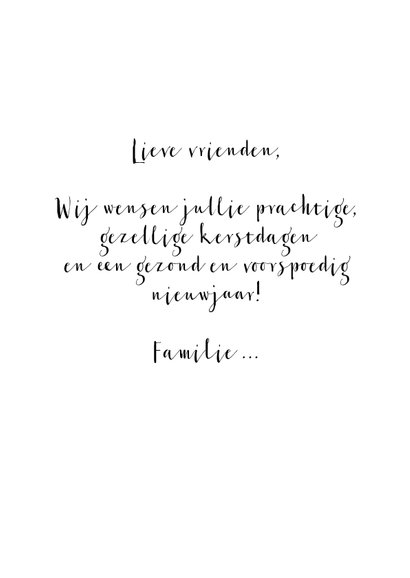 Lieve vrienden,
Wij wensen jullie prachtige,
gezellige kerstdagen
en een gezond en voorspoedig
nieuwjaar!
Familie ...